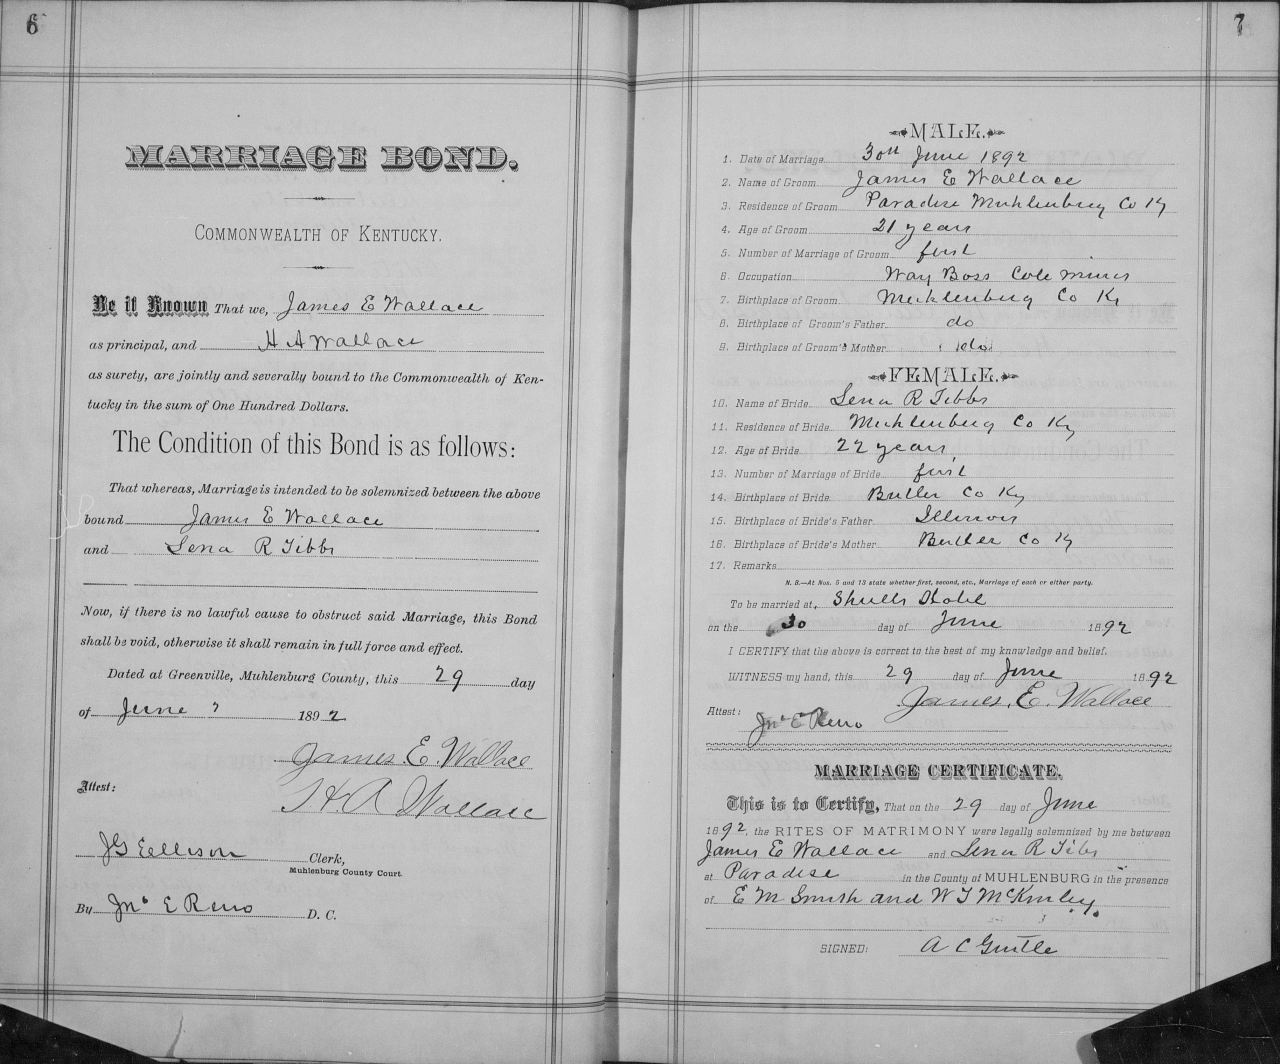 6
MARRIAGE BOND.
COMMONWEALTH OF KENTUCKY.
Be it Known That we, James E Wallace
as principal, and H A Wallace
as surety, are jointly and severally bound to the Commonwealth of Ken-
tucky in the sum of One Hundred Dollars.
The Condition of this Bond is as follows:
That whereas, Marriage is intended to be solemnized between the above
bound James E Wallace
and Lena R Tibbs
Now, if there is no lawful cause to obstruct said Marriage, this Bond
shall be void, otherwise it shall remain in full force and effect.
Dated at Greenville, Muhlenburg County, this 29 day
of June 1892
James. E. Wallace
Attest: H. A Wallace
J G Ellison Clerk,
Muhlenburg County Court.
By Jno E Reno D. C.
7
MALE.
1. Date of Marriage 30th June 1892
2. Name of Groom James E Wallace
3. Residence of Groom Paradise Muhlenburg Co Ky
4. Age of Groom 21 years
5. Number of Marriage of Groom first
6. Occupation Way Boss Cole mines
7. Birthplace of Groom Mecklenburg Co Ky
8. Birthplace of Groom's Father do
9. Birthplace of Groom's Mother do
FEMALE.
10. Name of Bride Lena R Tibbs
11. Residence of Bride Muhlenburg Co Ky
12. Age of Bride 22 years
13. Number of Marriage of Bride first
14. Birthplace of Bride Butler Co Ky
15. Birthplace of Bride's Father Illinois
16. Birthplace of Bride's Mother Butler Co Ky
17. Remarks
N. B.—At Nos. 5 and 13 state whether first, second, etc., Marriage of each or either party.
To be married at, Shulls Hotel
on the 30 day of June 1892
I CERTIFY that the above is correct to the best of my knowledge and belief.
WITNESS my hand, this 29 day of June 1892
James. E. Wallace
Attest: Jno E Reno
MARRIAGE CERTIFICATE.
This is to Certify, That on the 29 day of June
1892, the RITES OF MATRIMONY were legally solemnized by me between
James E Wallace and Lena R Tibs
at Paradise in the County of MUHLENBURG in the presence
of E M Smith and W T McKinley.
SIGNED: A C Gentle